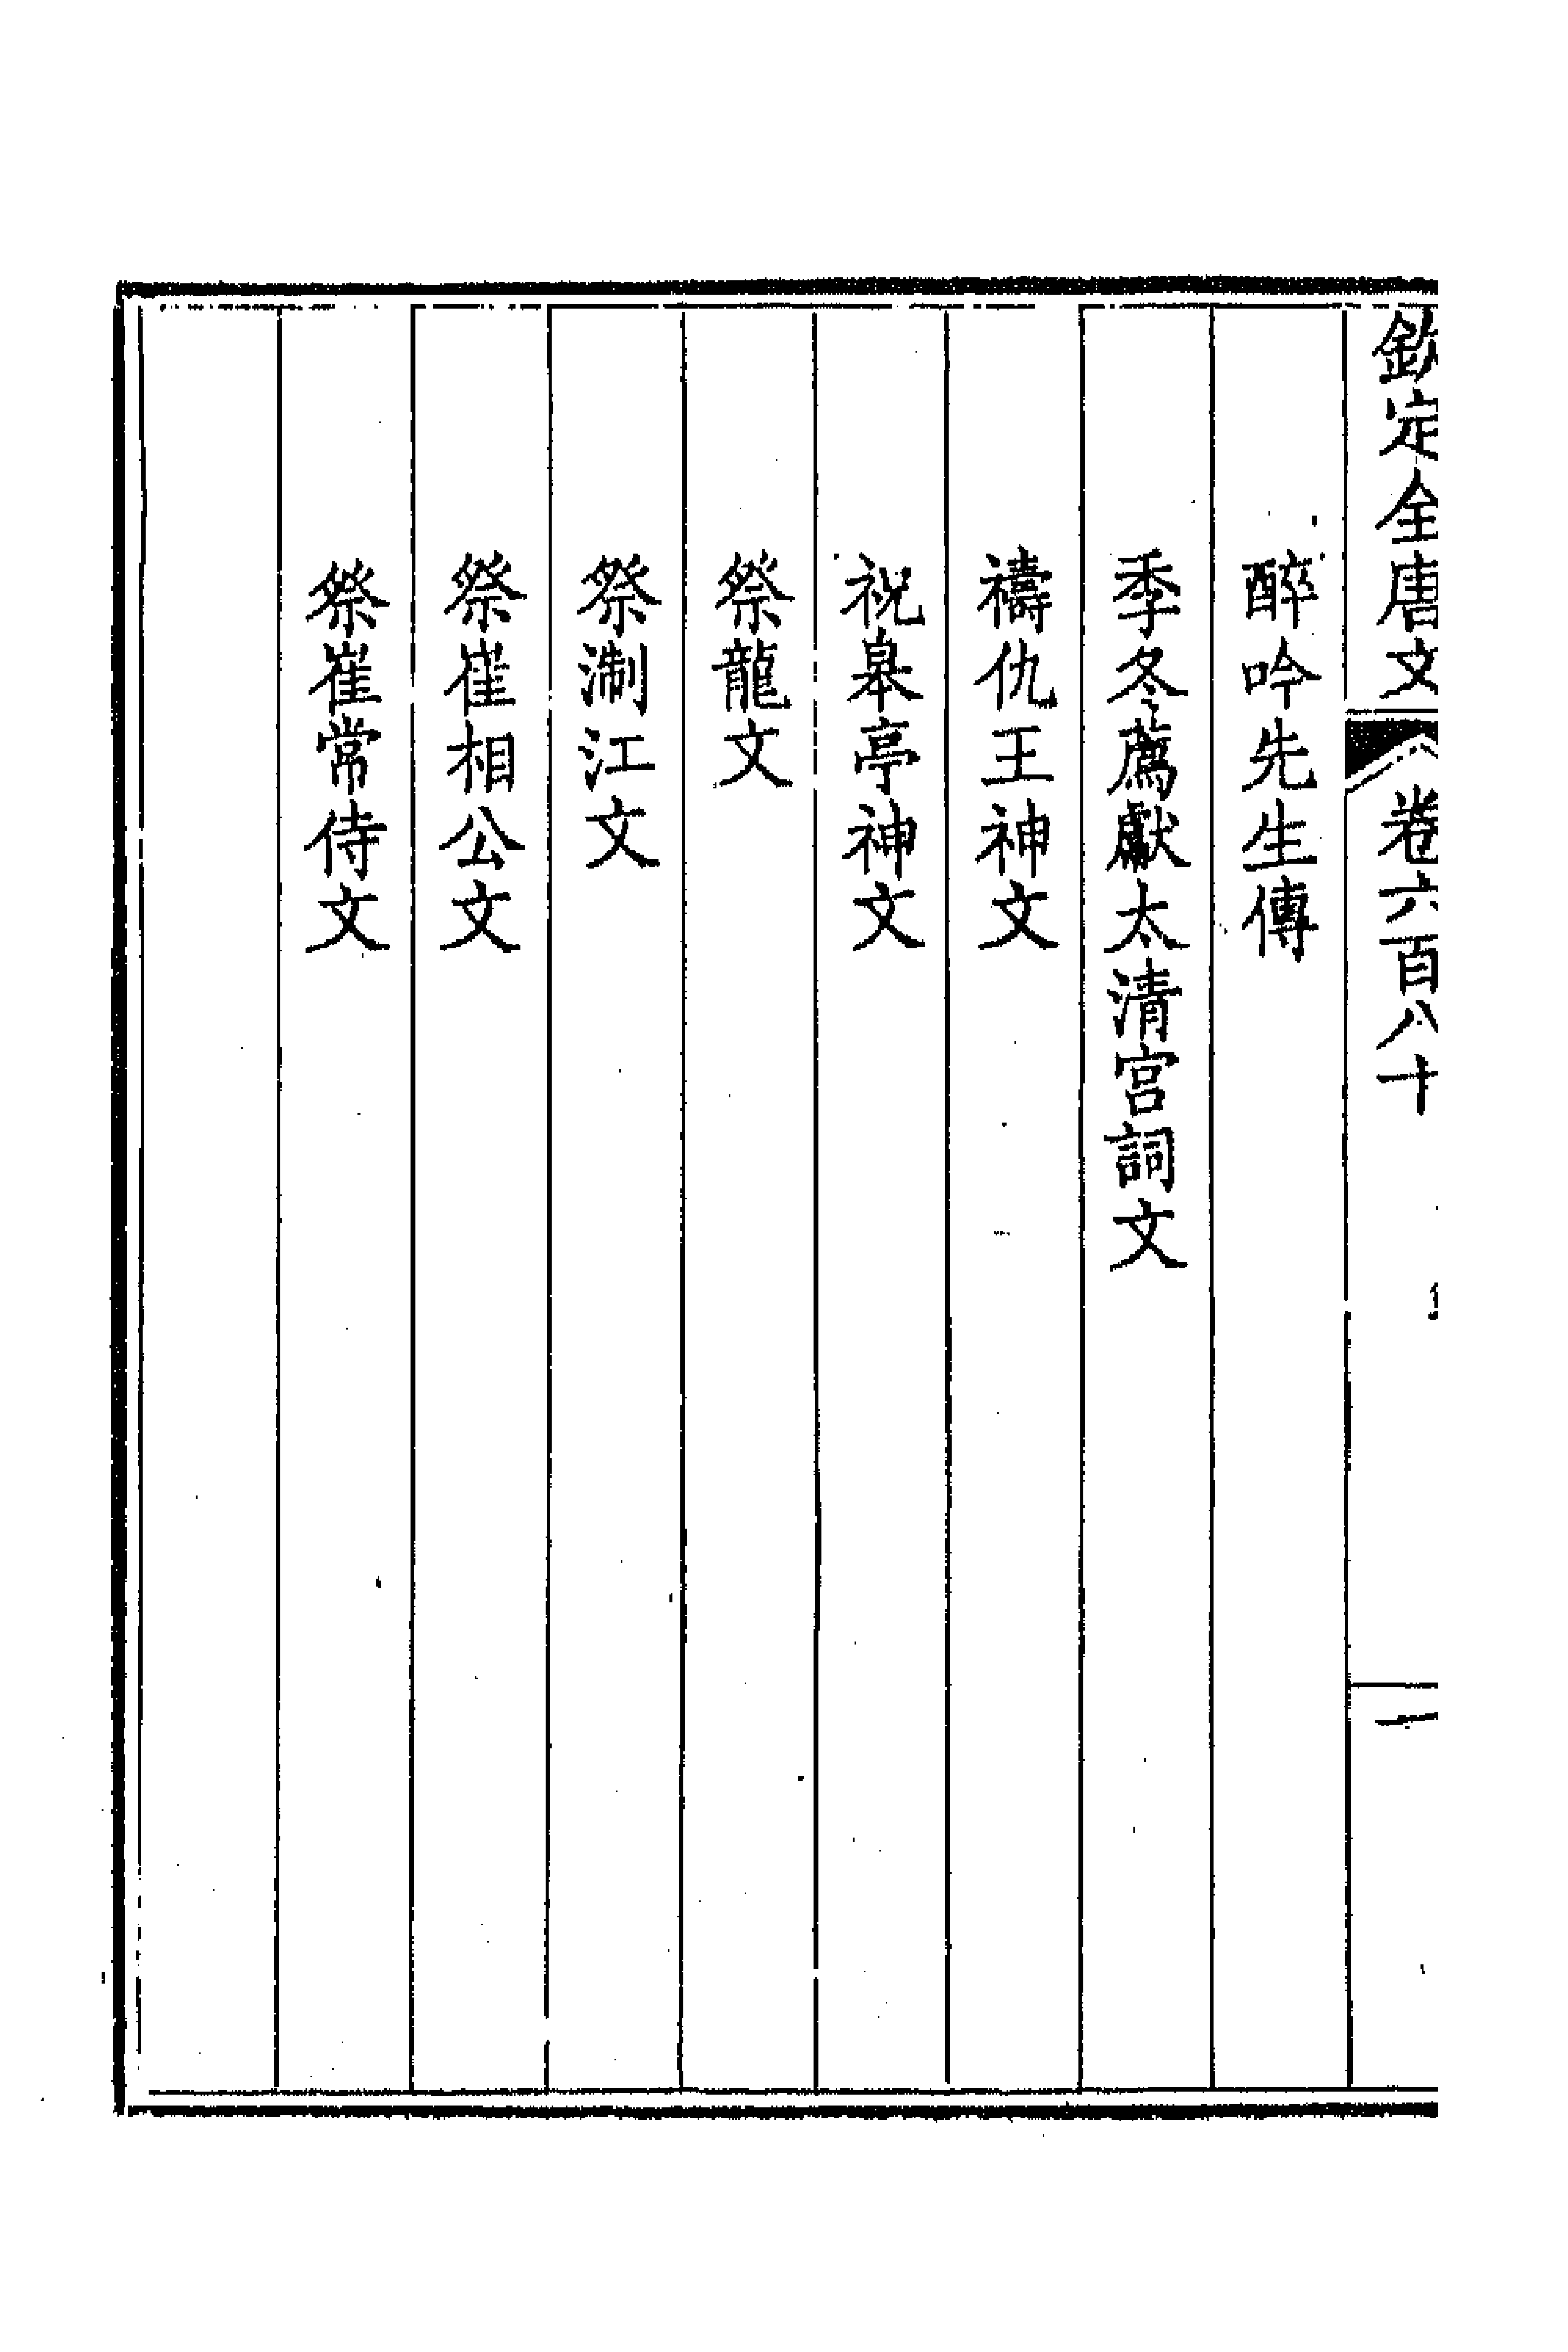 欽定全唐文 卷六百八十 一
醉吟先生傳
季冬薦獻太清宮詞文
禱仇王神文
祝皋亭神文
祭龍文
祭淛江文
祭崔相公文
祭崔常侍文